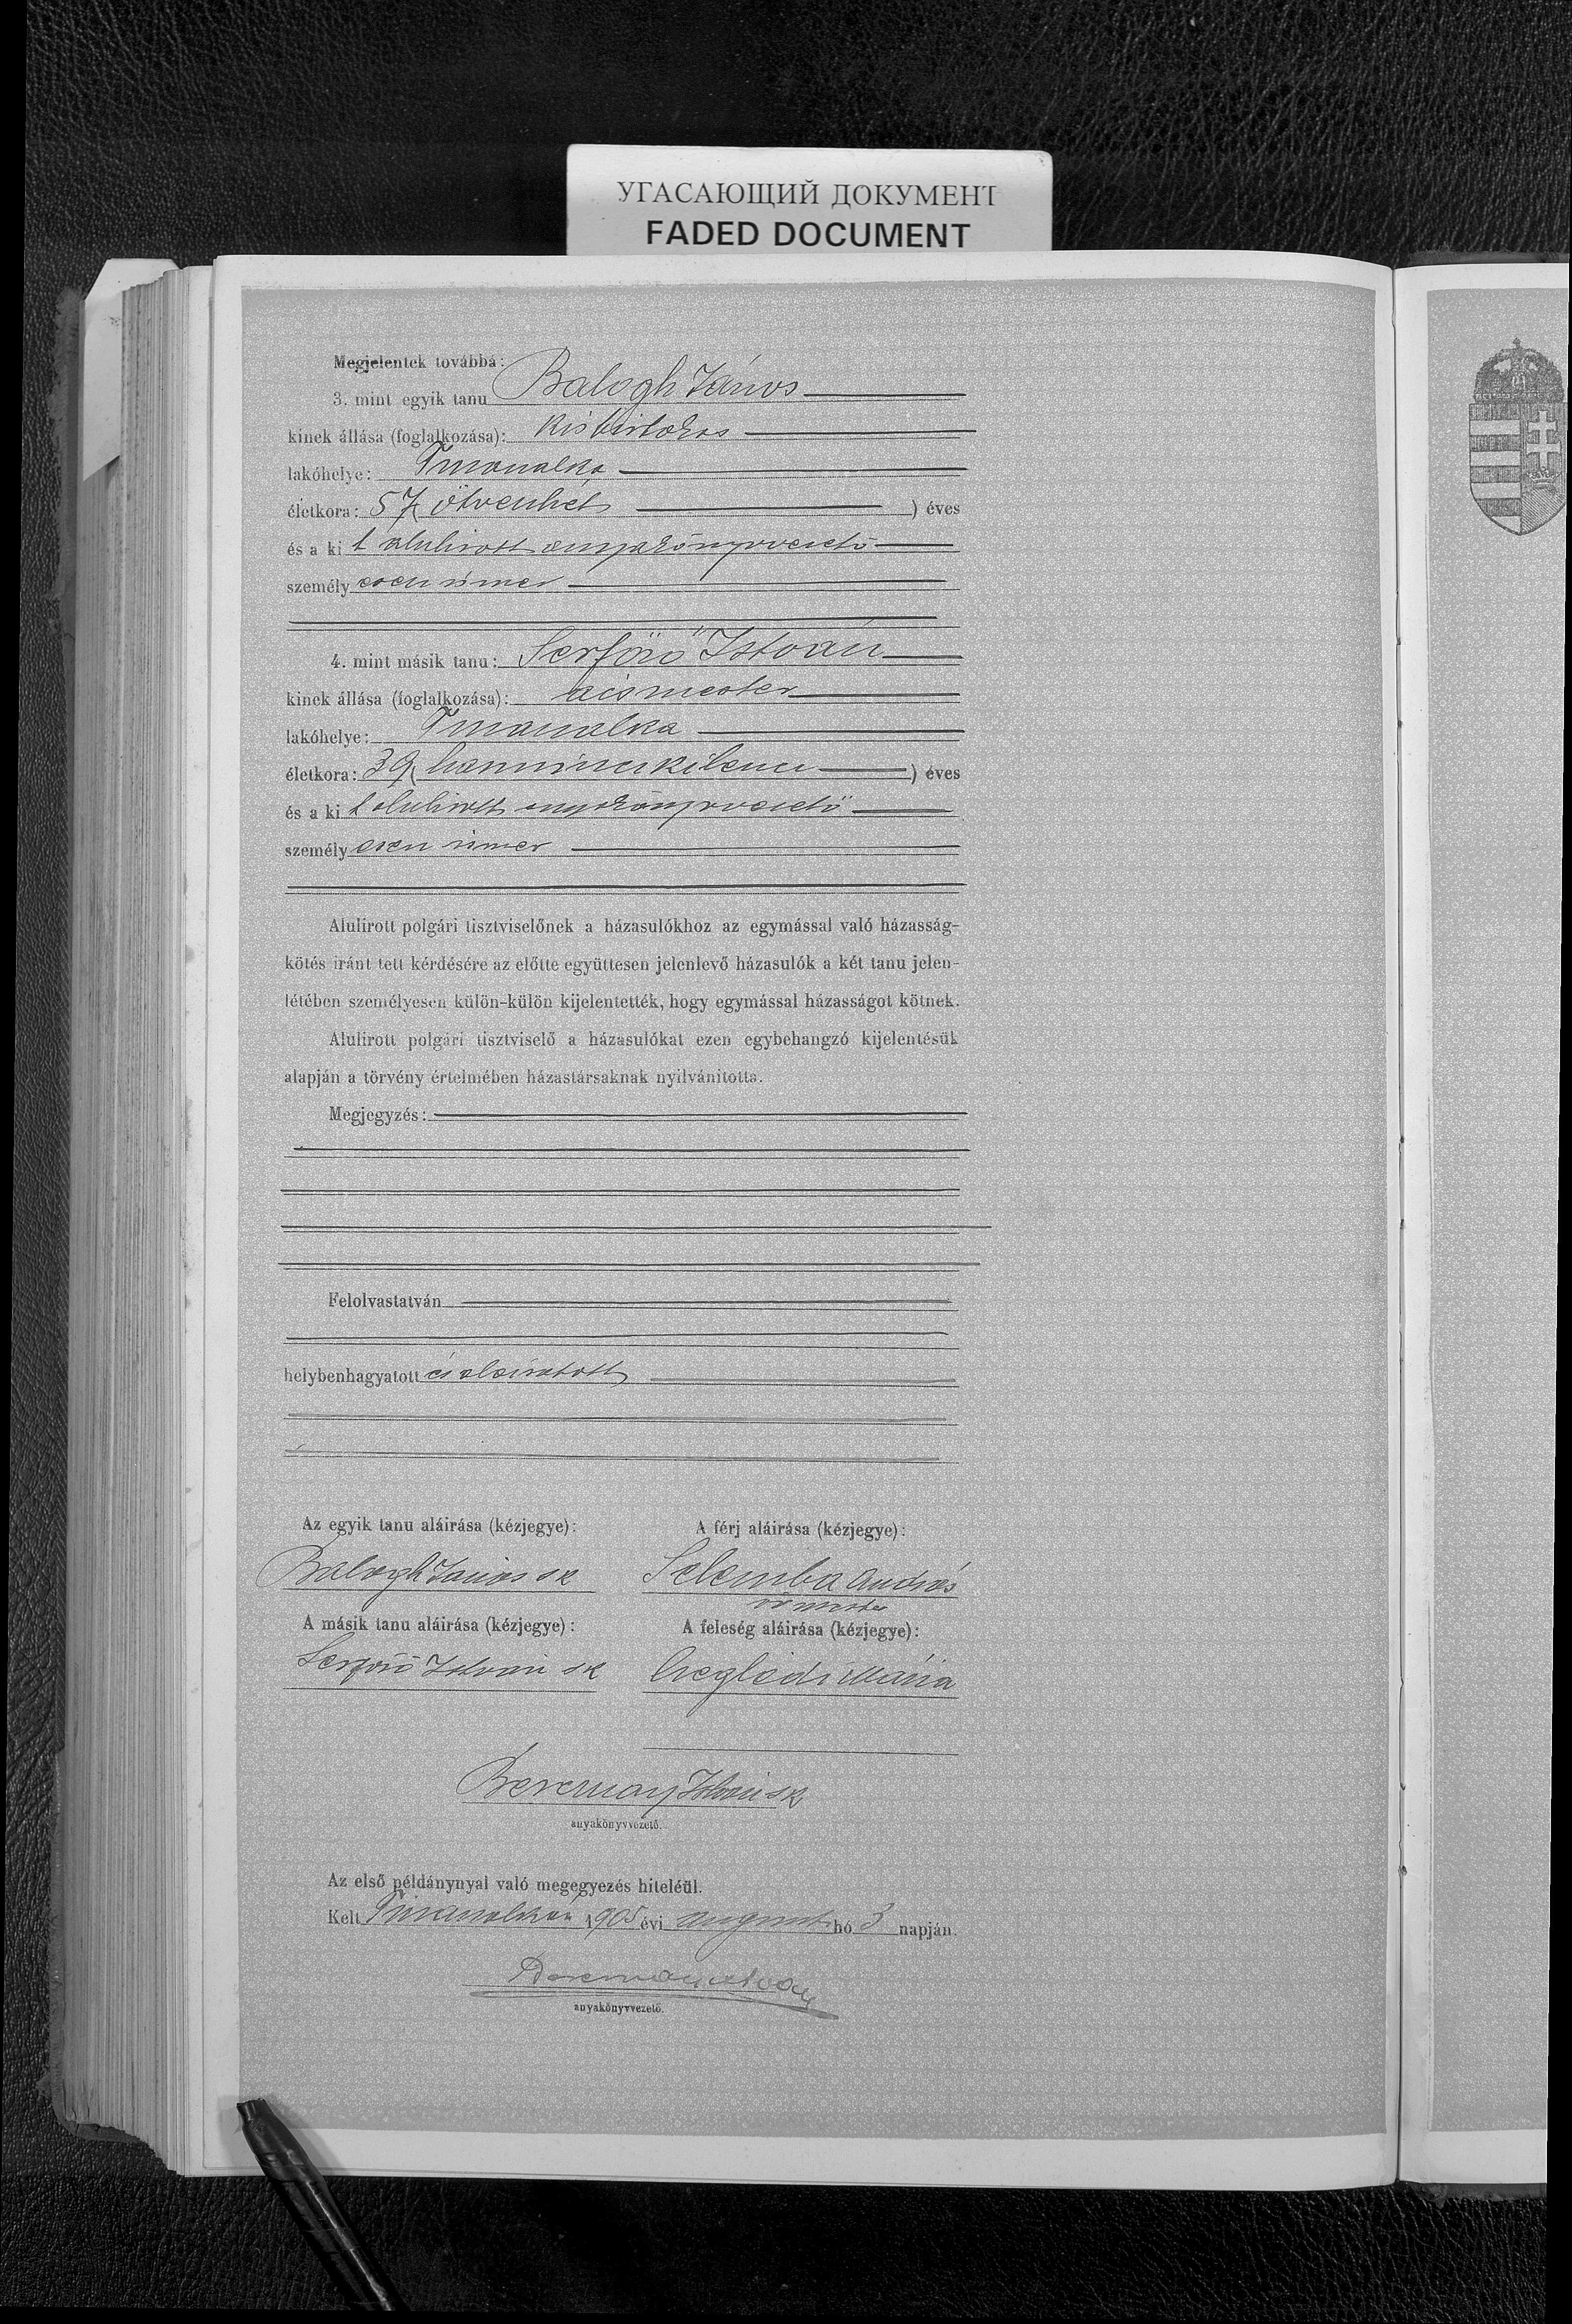 УГАСАЮЩИЙ ДОКУМЕНТ
FADED DOCUMENT
Megjelentek továbbá:
3. mint egyik tanu Balogh János
kinek állása (foglalkozása): kisbirtokos
lakóhelye: Tiszanalka
életkora: 57 (ötvenhét) éves
és a ki t alulirott anyakönyvvezető
személyesen ismer
4. mint másik tanu: Serfőző István
kinek állása (foglalkozása): ácsmester
lakóhelye:
életkora: 39 (harminczkilencz) éves
és a ki t alulirott anyakönyvvezető
személyesen ismer
Alulirott polgári tisztviselőnek a házasulókhoz az egymással való házasság-
kötés iránt tett kérdésére az előtte együttesen jelenlevő házasulók a két tanu jelen-
létében személyesen külön-külön kijelentették, hogy egymással házasságot kötnek.
Alulirott polgári tisztviselő a házasulókat ezen egybehangzó kijelentésük
alapján a törvény értelmében házastársaknak nyilvánitotta.
Megjegyzés:
Felolvastatván
helybenhagyatott és aláiratott
Az egyik tanu aláirása (kézjegye):
A férj aláirása (kézjegye):
Balogh János sk
Selemba András
őrmester
A másik tanu aláirása (kézjegye):
A feleség aláirása (kézjegye):
Serfőző István sk
Czeglédi Mária
István sk
anyakönyvvezető.
Az első példánynyal való megegyezés hiteléül.
Kelt 1905 évi august hó 3 napján.
anyakönyvvezető.